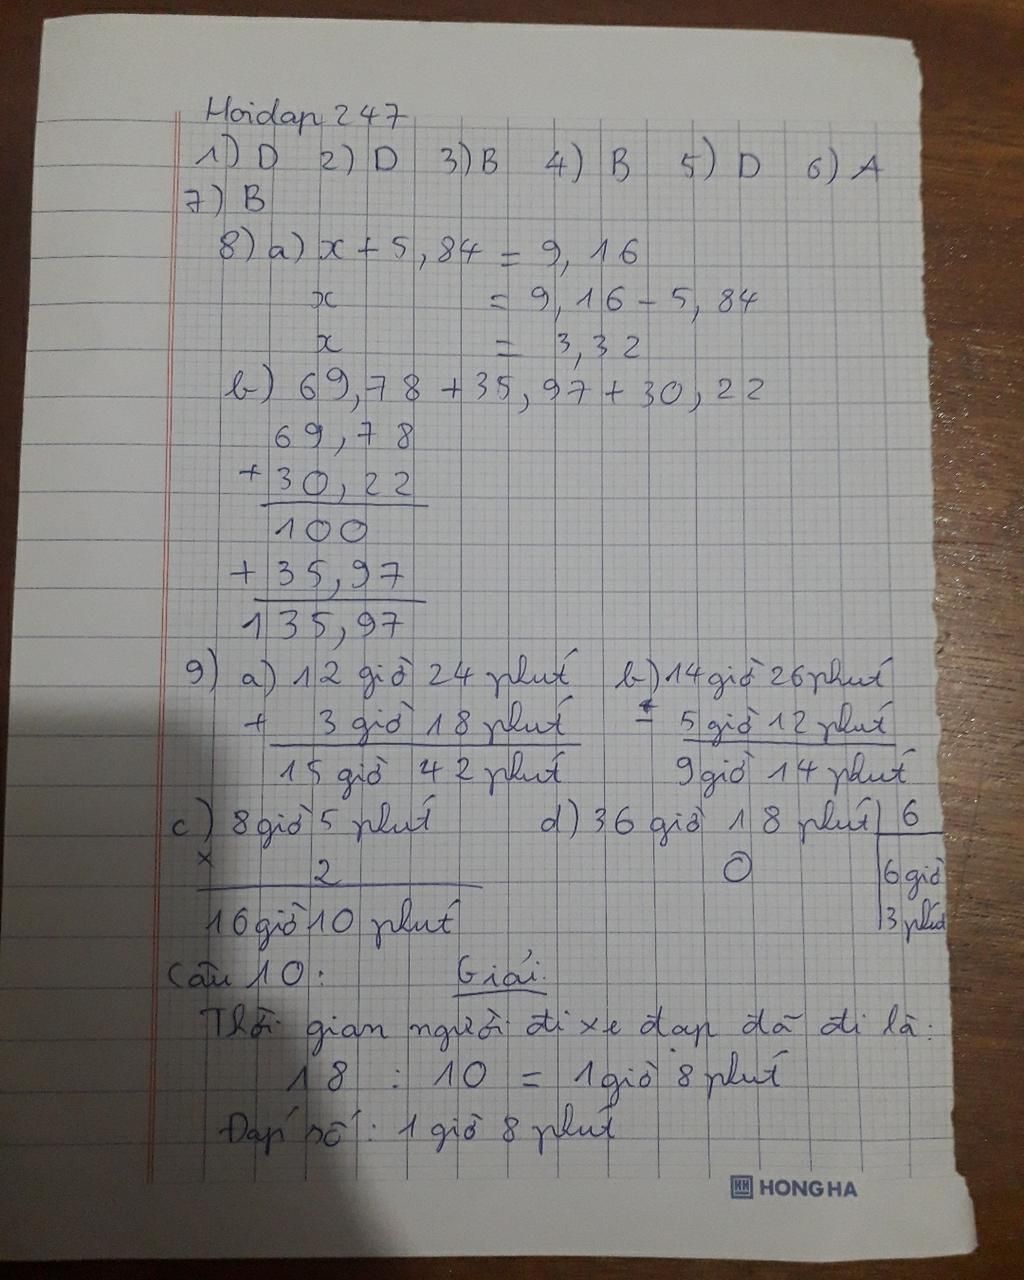 Hoidap 247
1) D 2) D 3) B 4) B 5) D 6) A
7) B
8) a) x + 5,84 = 9,16
x = 9,16 - 5,84
x = 3,32
b) 69,78 + 35,97 + 30,22
69,78
+ 30,22
100
+ 35,97
135,97
9) a) 12 giờ 24 phút b) 14 giờ 26 phút
+ 3 giờ 18 phút - 5 giờ 12 phút
15 giờ 42 phút 9 giờ 14 phút
c) 8 giờ 5 phút d) 36 giờ 18 phút 6
x 2 0 6 giờ
16 giờ 10 phút 3 phút
Câu 10: Giải:
Thời gian người đi xe đạp đã đi là:
18 : 10 = 1 giờ 8 phút
Đáp số: 1 giờ 8 phút
HONG HA